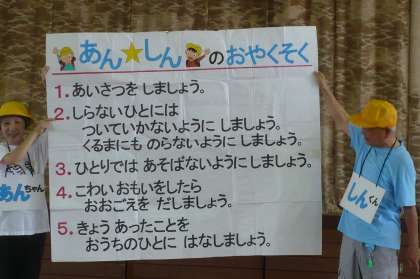 あん★しんのおやくそく
1. あいさつを しましょう。
2. しらないひとには
ついていかないように しましょう。
くるまにも のらないように しましょう。
3. ひとりでは あそばないように しましょう。
4. こわい おもいをしたら
おおごえを だしましょう。
5. きょう あったことを
おうちのひとに はなしましょう。
あんちゃん
しんくん